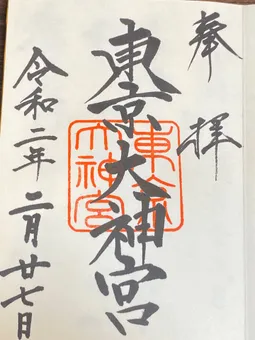 奉拝
東京大神宮
東京
大神宮
令和二年二月廿七日